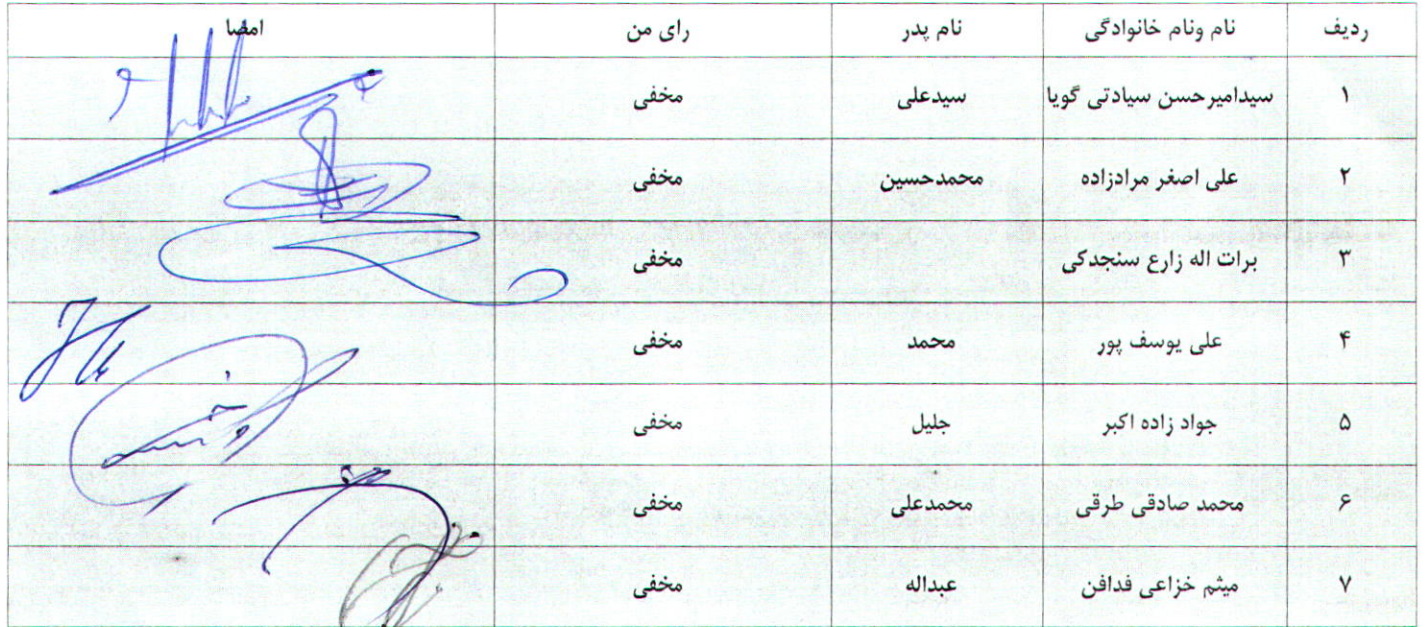 ردیف نام ونام خانوادگی نام پدر رای من امضا
۱ سیدامیرحسن سیادتی گویا سیدعلی مخفی
۲ علی اصغر مرادزاده محمدحسین مخفی
۳ برات اله زارع سنجدکی مخفی
۴ علی یوسف پور محمد مخفی
۵ جواد زاده اکبر جلیل مخفی
۶ محمد صادقی طرقی محمدعلی مخفی
۷ میثم خزاعی فدافن عبداله مخفی